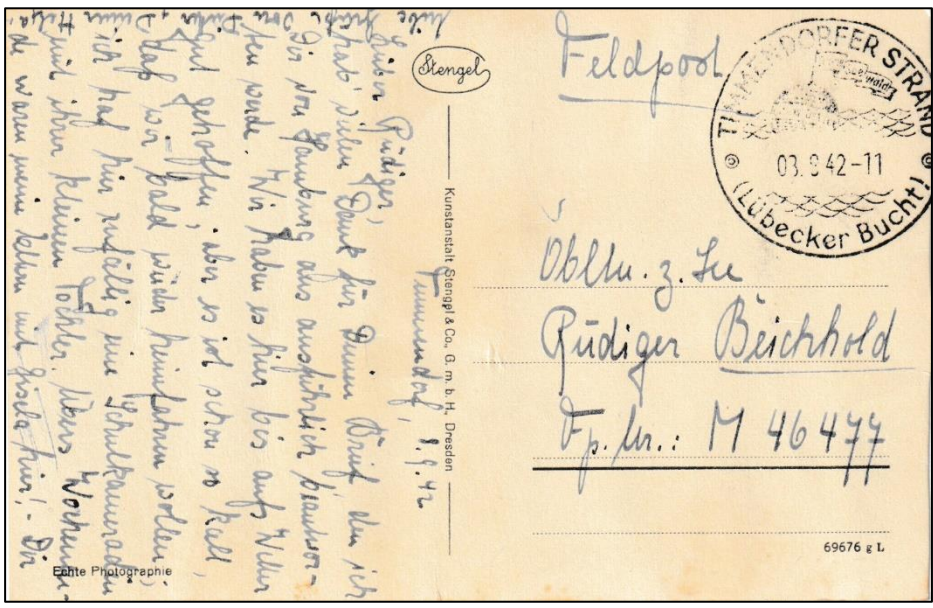 Feldpost
TIMMENDORFER STRAND
03.9.42-11
(Lübecker Bucht)
Obltn. z. See
Rüdiger Beichhold
Fp. Nr.: M 46477
69676 g L
Stengel
Kunstanstalt Stengel & Co., G. m. b. H. Dresden
Echte Photographie
Timmendorf, 1.9.42
Lieber Rüdiger,
hab' vielen Dank für Deinen Brief, den ich
Dir von Hamburg aus ausführlich beantwor-
ten werde. Wir haben es hier bis aufs Wetter
gut getroffen, aber es ist schon so kalt,
daß wir bald wieder heimfahren wollen.
Ich hab hier zufällig eine Schulkameradin
mit ihrer kleinen Tochter. Übers Wochenen-
de waren meine Eltern mit Gisela hier! - Dir
liebe Grüße von Deiner Helga.